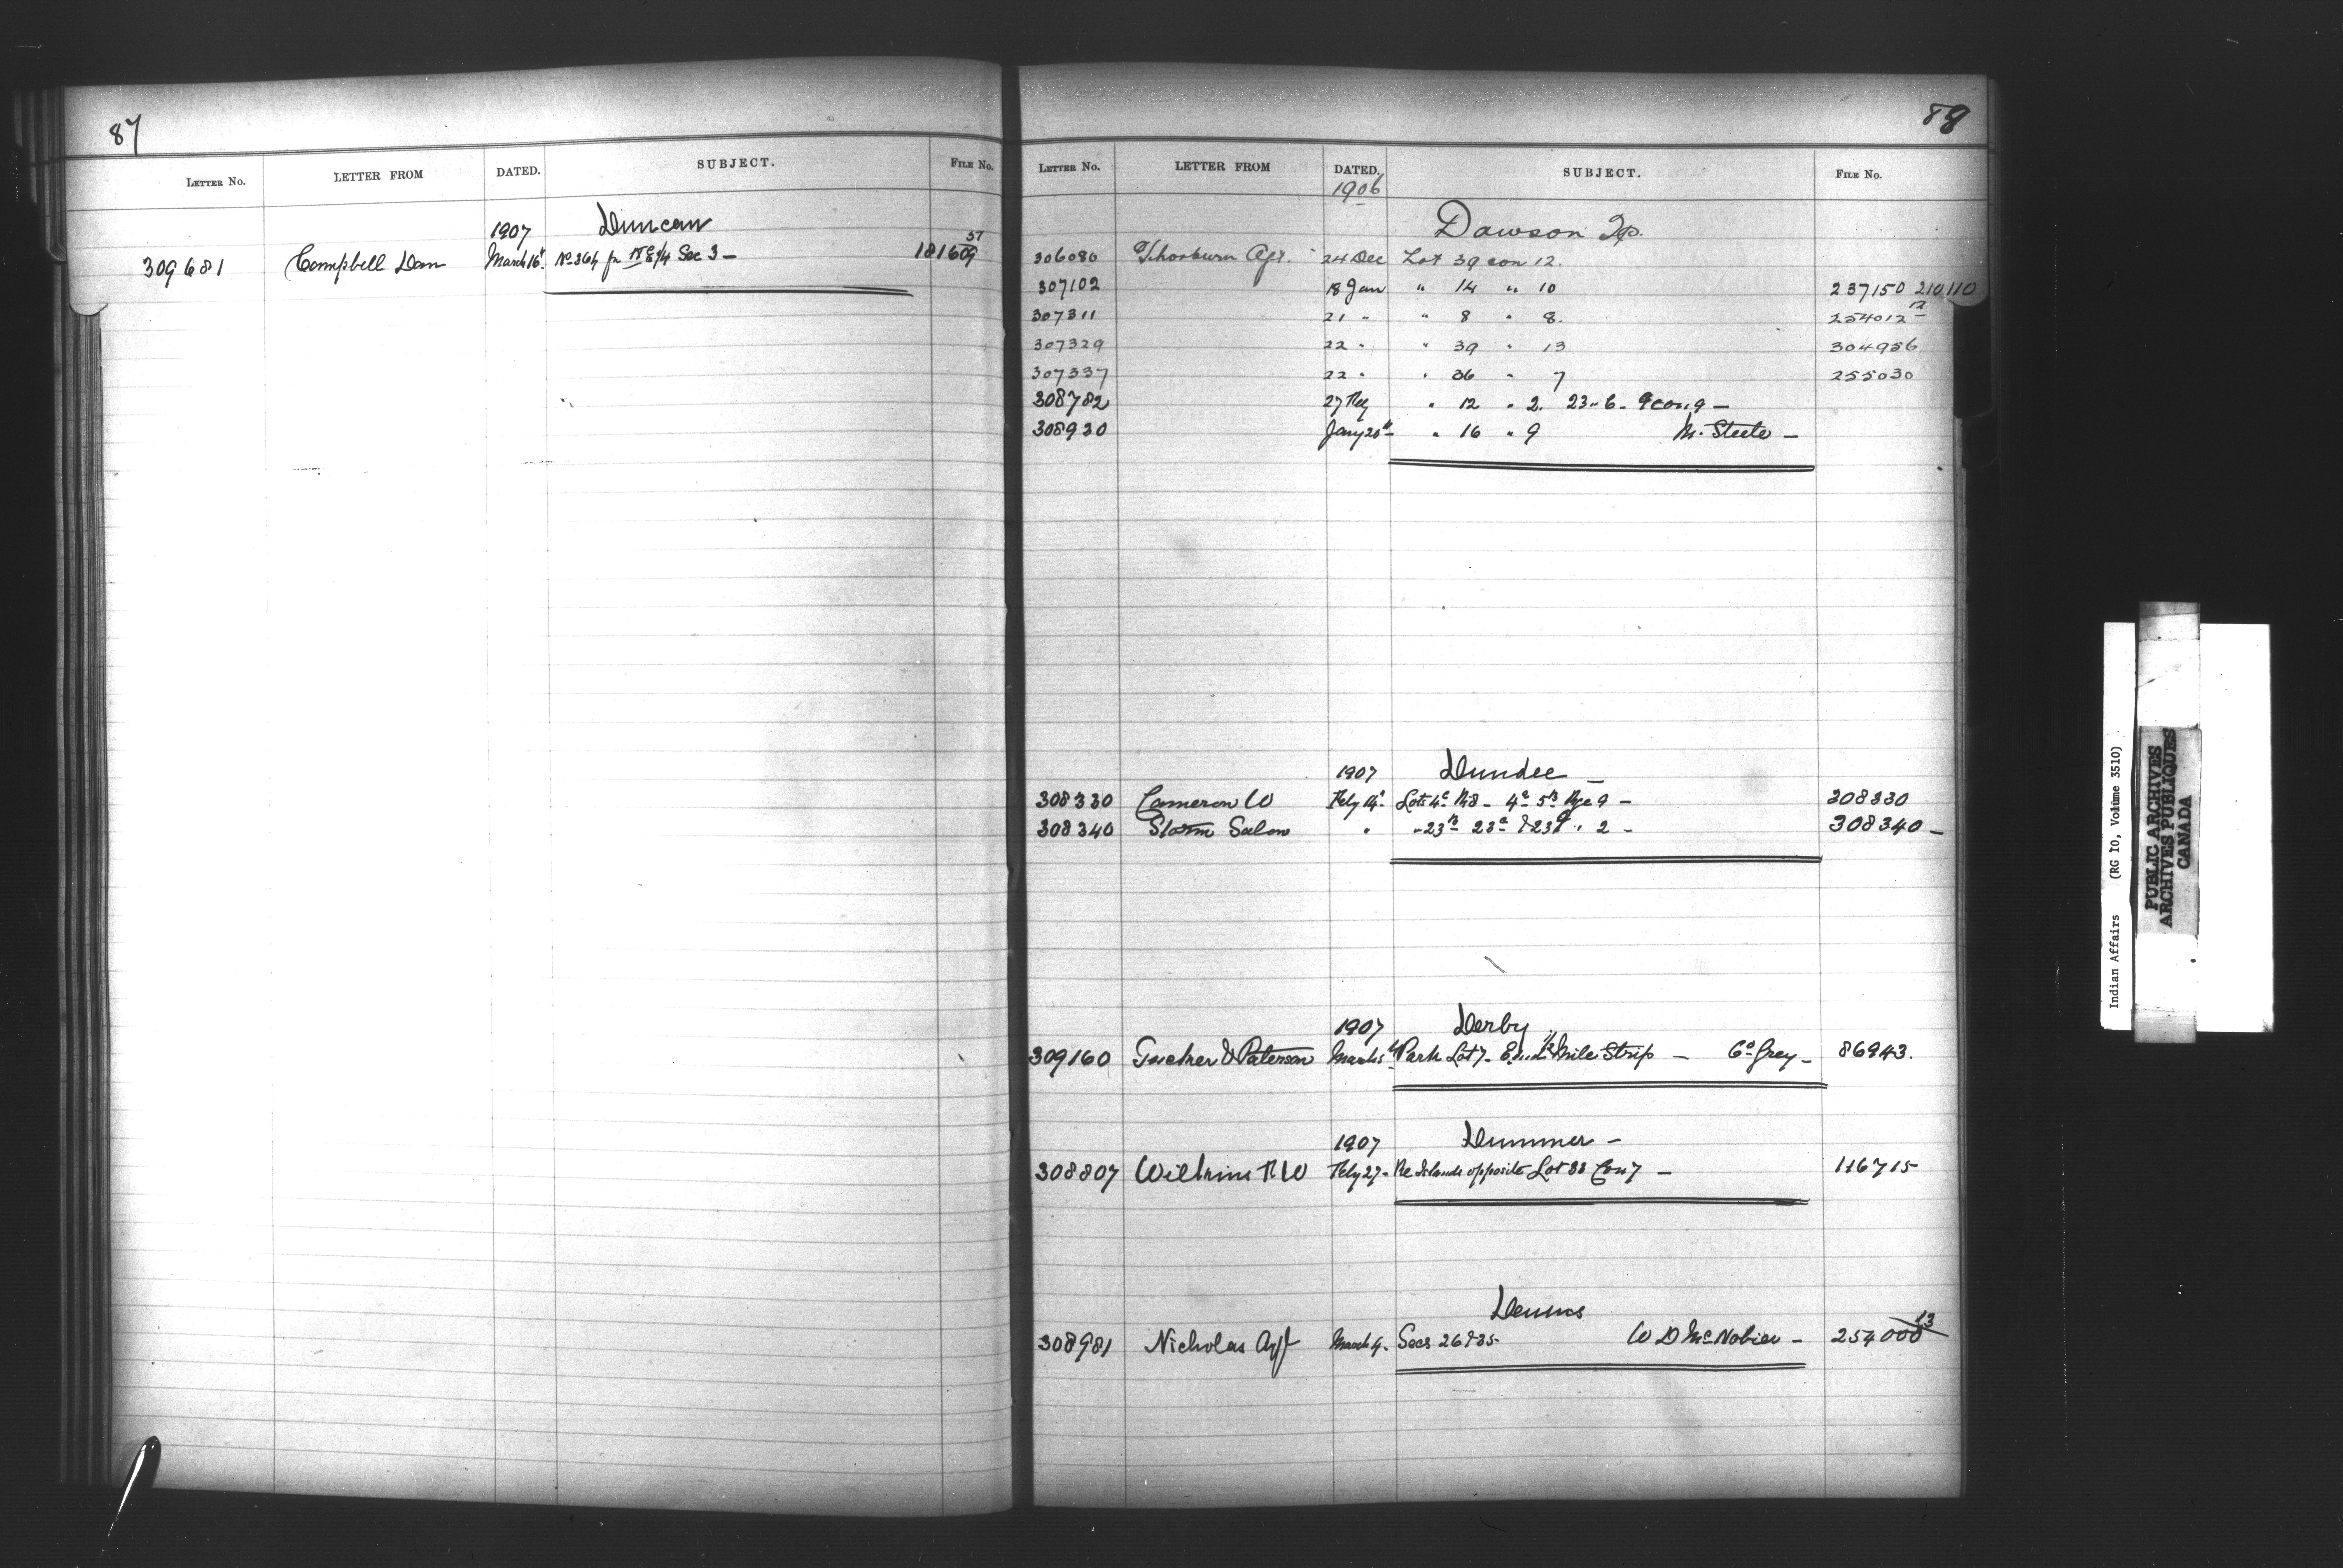 87
LETTER No. LETTER FROM DATED. SUBJECT. FILE No.
1907 Duncan
309681 Campbell Dan March 16th No 364 pr NE 1/4 Sec 3 — 181609 57
88
LETTER No. LETTER FROM DATED. SUBJECT. FILE No.
1906
Dawson Tp.
306080 Thorburn Agt. 24 Dec Lot 39 con 12.
307102 18 Jan " 14 " 10 237150 210110
307311 21 " " 8 " 8. 254012 12
307329 22 " " 39 " 13 304956
307337 22 " " 36 " 7 255030
308782 27 Feby " 12 " 2. 23 " 6 - 9 con 9 —
308930 Jany 20th " 16 " 9 M. Steele —
1907 Dundee —
308330 Cameron W Feby 14th Lots 4c 4a 5b Rge 9 — 308330
308340 Storm Salem " " 23b 23a & 23d " 2 — 308340 —
1907 Derby
309160 Tucker & Paterson March Park Lot 7 - 1/2 Mile Strip — Co Grey — 86943.
1907 Dummer —
308807 Wilkins R W Feby 27 - Re Islands opposite Lot 33 Con 7 — 116715
Dennis
308981 Nicholas Agt March 4. Secs 26 & 35 W D McNobien — 254000 13
Indian Affairs (RG 10, Volume 3510)
PUBLIC ARCHIVES
ARCHIVES PUBLIQUES
CANADA